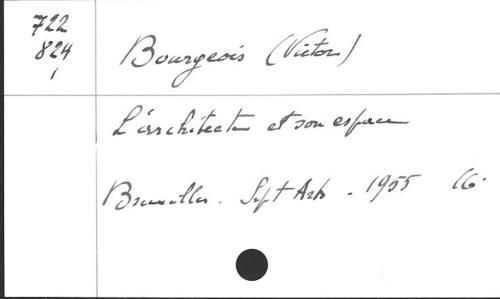 722
824
1
Bourgeois (Victor)
L'architecte et son espace
Bruxelles. Sept Arts. 1955 16°